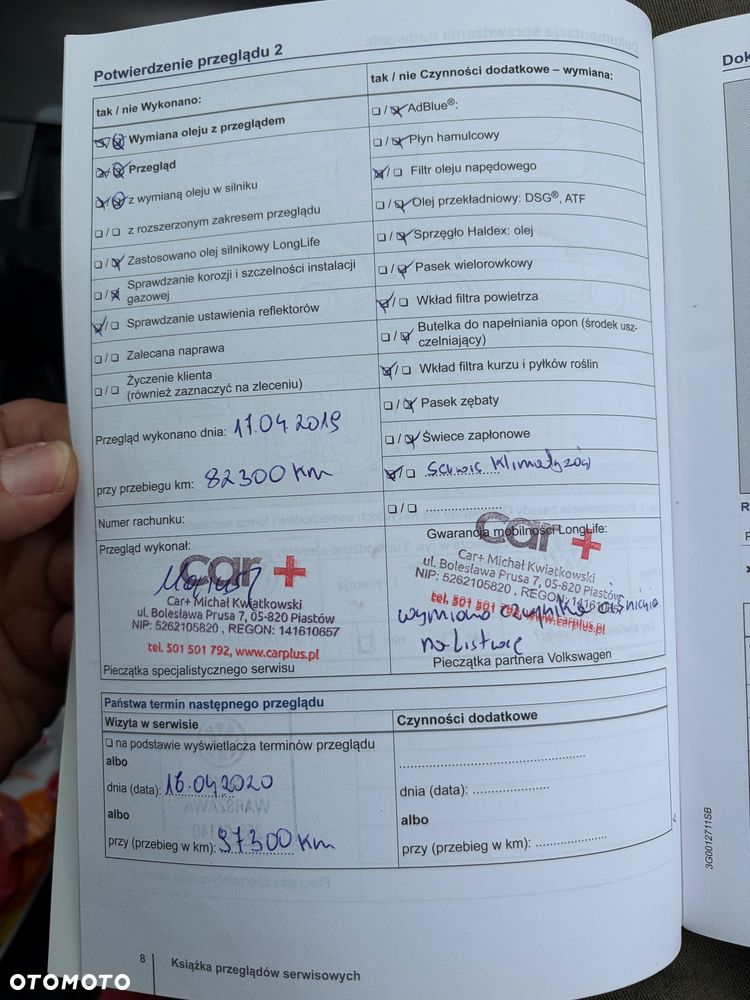 Potwierdzenie przeglądu 2
tak / nie Wykonano:
Wymiana oleju z przeglądem
Przegląd
z wymianą oleju w silniku
z rozszerzonym zakresem przeglądu
Zastosowano olej silnikowy LongLife
Sprawdzanie korozji i szczelności instalacji
gazowej
Sprawdzanie ustawienia reflektorów
Zalecana naprawa
Życzenie klienta
(również zaznaczyć na zleceniu)
Przegląd wykonano dnia: 17.04.2019
przy przebiegu km: 82300 km
Numer rachunku:
Przegląd wykonał:
car +
Car+ Michał Kwiatkowski
ul. Bolesława Prusa 7, 05-820 Piastów
NIP: 5262105820 , REGON: 141610657
tel. 501 501 792, www.carplus.pl
Pieczątka specjalistycznego serwisu
tak / nie Czynności dodatkowe – wymiana:
AdBlue®:
Płyn hamulcowy
Filtr oleju napędowego
Olej przekładniowy: DSG®, ATF
Sprzęgło Haldex: olej
Pasek wielorowkowy
Wkład filtra powietrza
Butelka do napełniania opon (środek usz-
czelniający)
Wkład filtra kurzu i pyłków roślin
Pasek zębaty
Świece zapłonowe
Serwis klimatyzacji
Gwarancja mobilności LongLife:
car +
Car+ Michał Kwiatkowski
ul. Bolesława Prusa 7, 05-820 Piastów
NIP: 5262105820 , REGON: 141610657
tel. 501 501 792, www.carplus.pl
wymiana czujnika ciśnienia
na listwie
Pieczątka partnera Volkswagen
Państwa termin następnego przeglądu
Wizyta w serwisie
na podstawie wyświetlacza terminów przeglądu
albo
dnia (data): 16.04.2020
albo
przy (przebieg w km): 97300 km
Czynności dodatkowe
dnia (data):
albo
przy (przebieg w km):
8
Książka przeglądów serwisowych
3G0012711SB
Dok
OTOMOTO